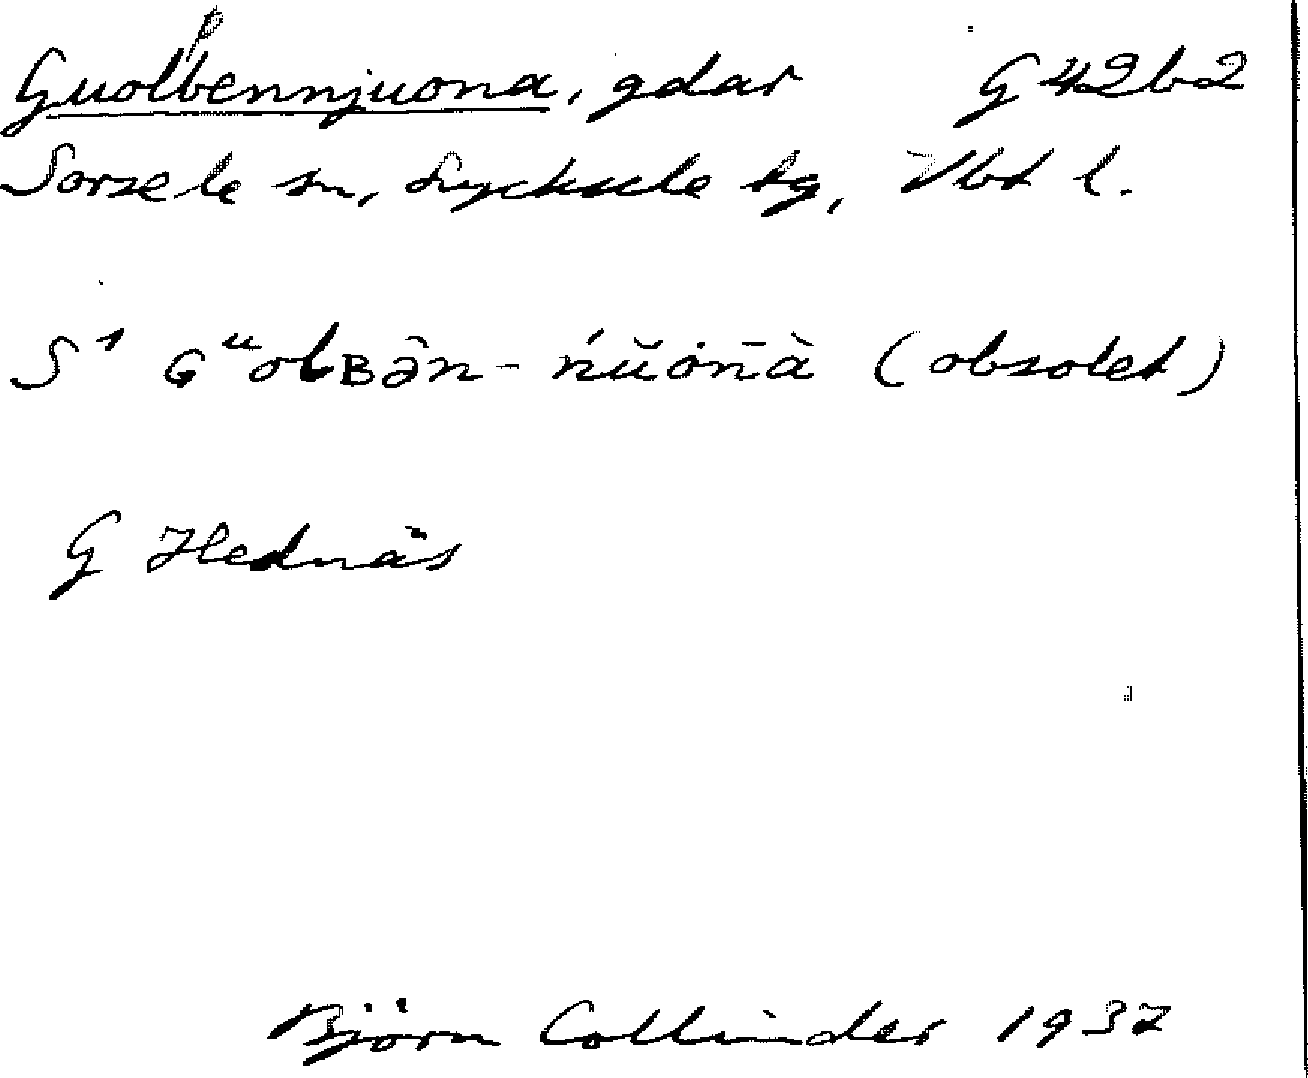 p
Guolbennjuona, gdar G 42b2
Sorsele sn, Lycksele tg, Vbt l.
S¹ Gᵘolʙə̑n-ńŭȯn̄à (obsolet)
G Hednäs
Björn Collinder 1937